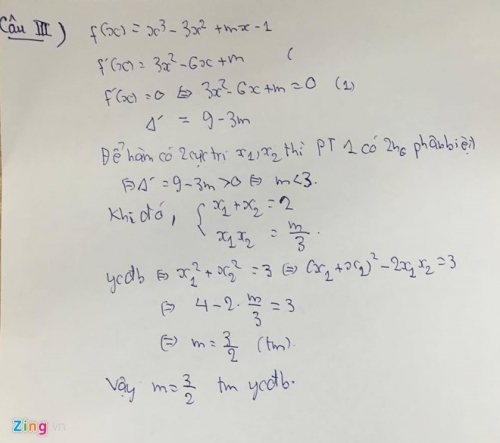 Câu III) f(x) = x³ - 3x² + mx - 1
f'(x) = 3x² - 6x + m (
f'(x) = 0 ⇔ 3x² - 6x + m = 0 (1)
Δ' = 9 - 3m
Để hàm có 2 cực trị x₁, x₂ thì PT 1 có 2 n₀ phân biệt
⇔ Δ' = 9 - 3m > 0 ⇔ m < 3.
Khi đó, { x₁ + x₂ = 2
x₁x₂ = m/3.
ycđb ⇔ x₁² + x₂² = 3 ⇔ (x₁ + x₂)² - 2x₁x₂ = 3
⇔ 4 - 2. m/3 = 3
⇔ m = 3/2 (tm).
Vậy m = 3/2 tm ycđb.
Zing.vn